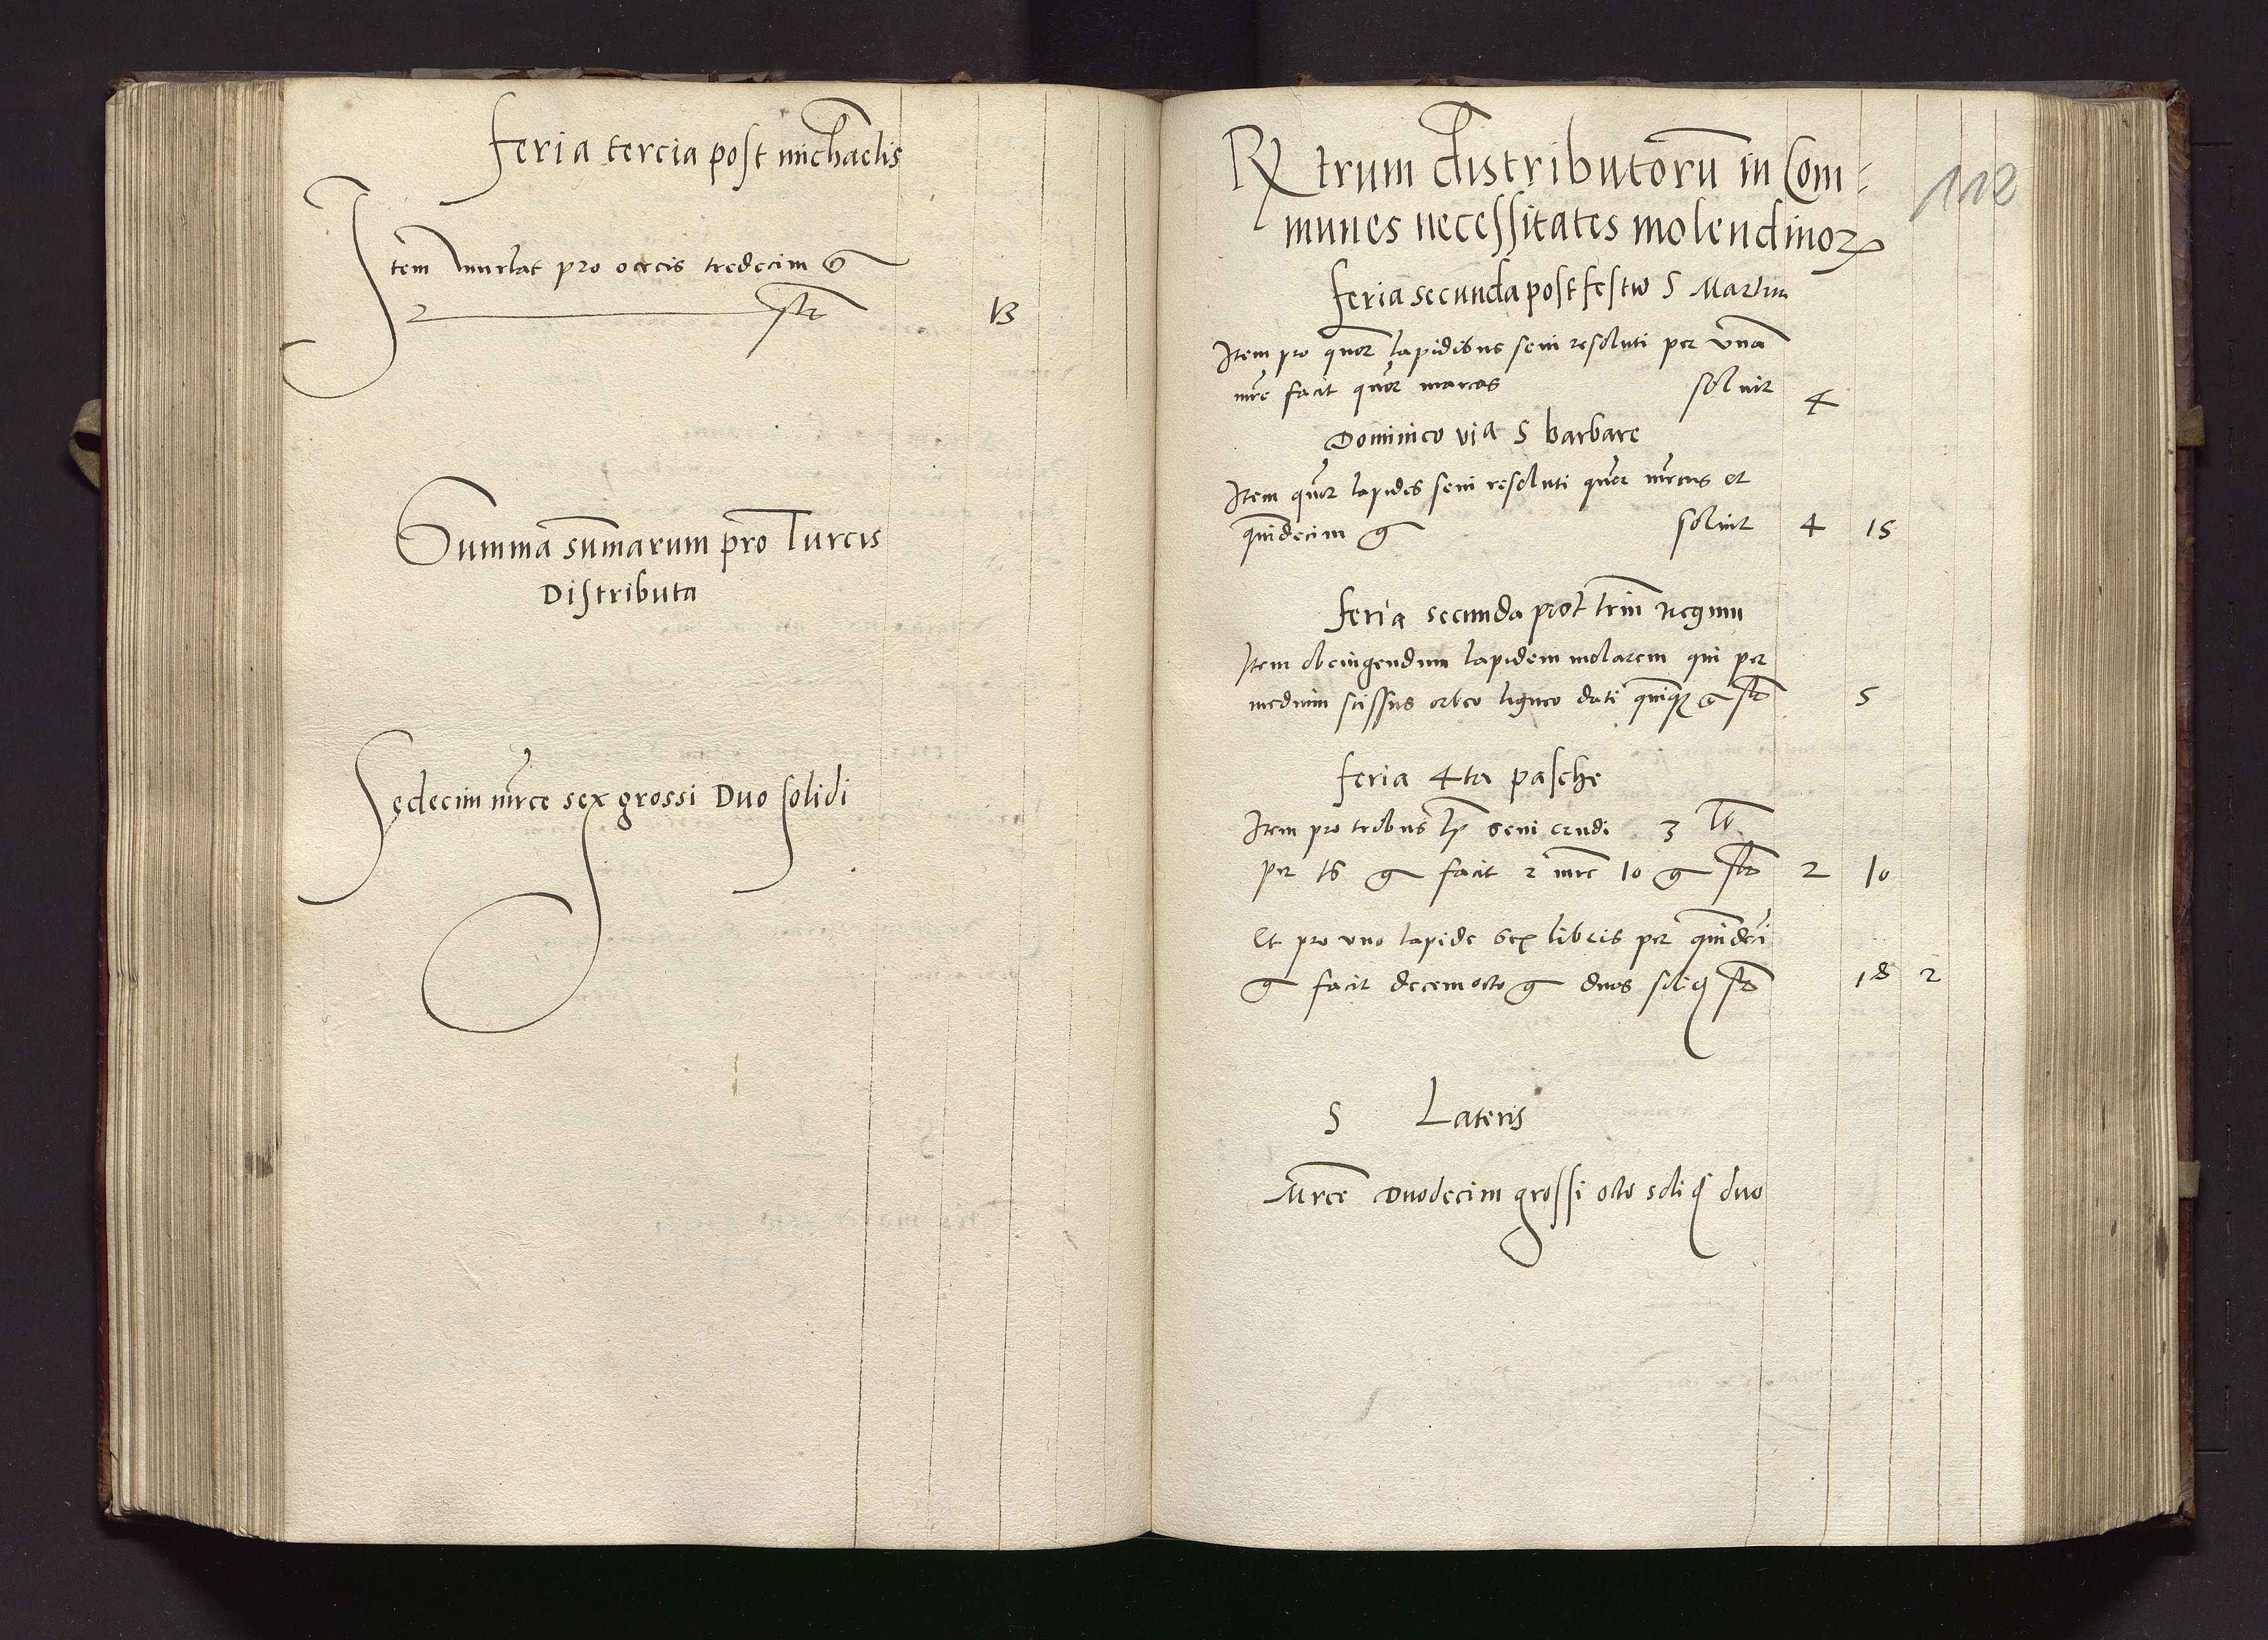 feria tercia post michaelis
Item pro ocreis tredecim g
2 13
Summa summarum pro Turcis
Distributa
Sedecim mrce sex grossi Duo solidi
112
Rtrum distributorū in Com=
munes necessitates molendinorꝝ
feria secunda post festū S Martini
Item pro quor lapidibus sevi resoluti per vnā
mrc facit quor marcas soluit 4
Dominico via S barbare
Item quor lapides sevi resoluti quor mrcas et
quindecim g soluit 4 15
feria secunda post trin regnm
Item obcingendum lapidem molarem qui per
medium scissus orbeo ligneo dati quinqꝫ g st 5
feria 4ta pasche
Item pro tribus lp sevi crudi 3 lb
per 16 g facit 2 mrc 10 g st 2 10
Et pro vno lapide sex libris per quindeci
g facit decemocto g duos soliꝗ st 18 2
S Lateris
Mrce Duodecim grossi octo soliꝗ duo